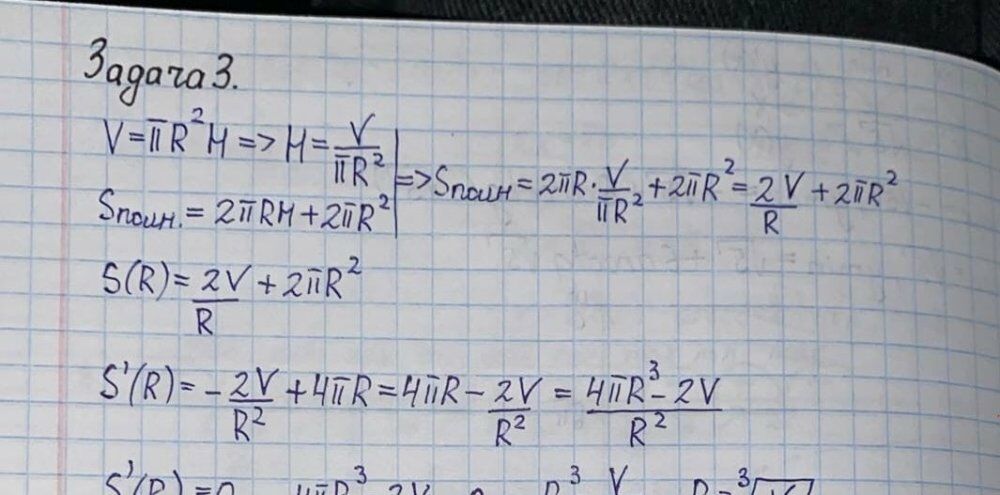 Задача 3.
V=πR²H => H=V/(πR²)
Sполн. = 2πRH+2πR² => Sполн = 2πR·V/(πR²)+2πR² = 2V/R + 2πR²
S(R)= 2V/R + 2πR²
S'(R)= -2V/R² + 4πR = 4πR - 2V/R² = (4πR³-2V)/R²